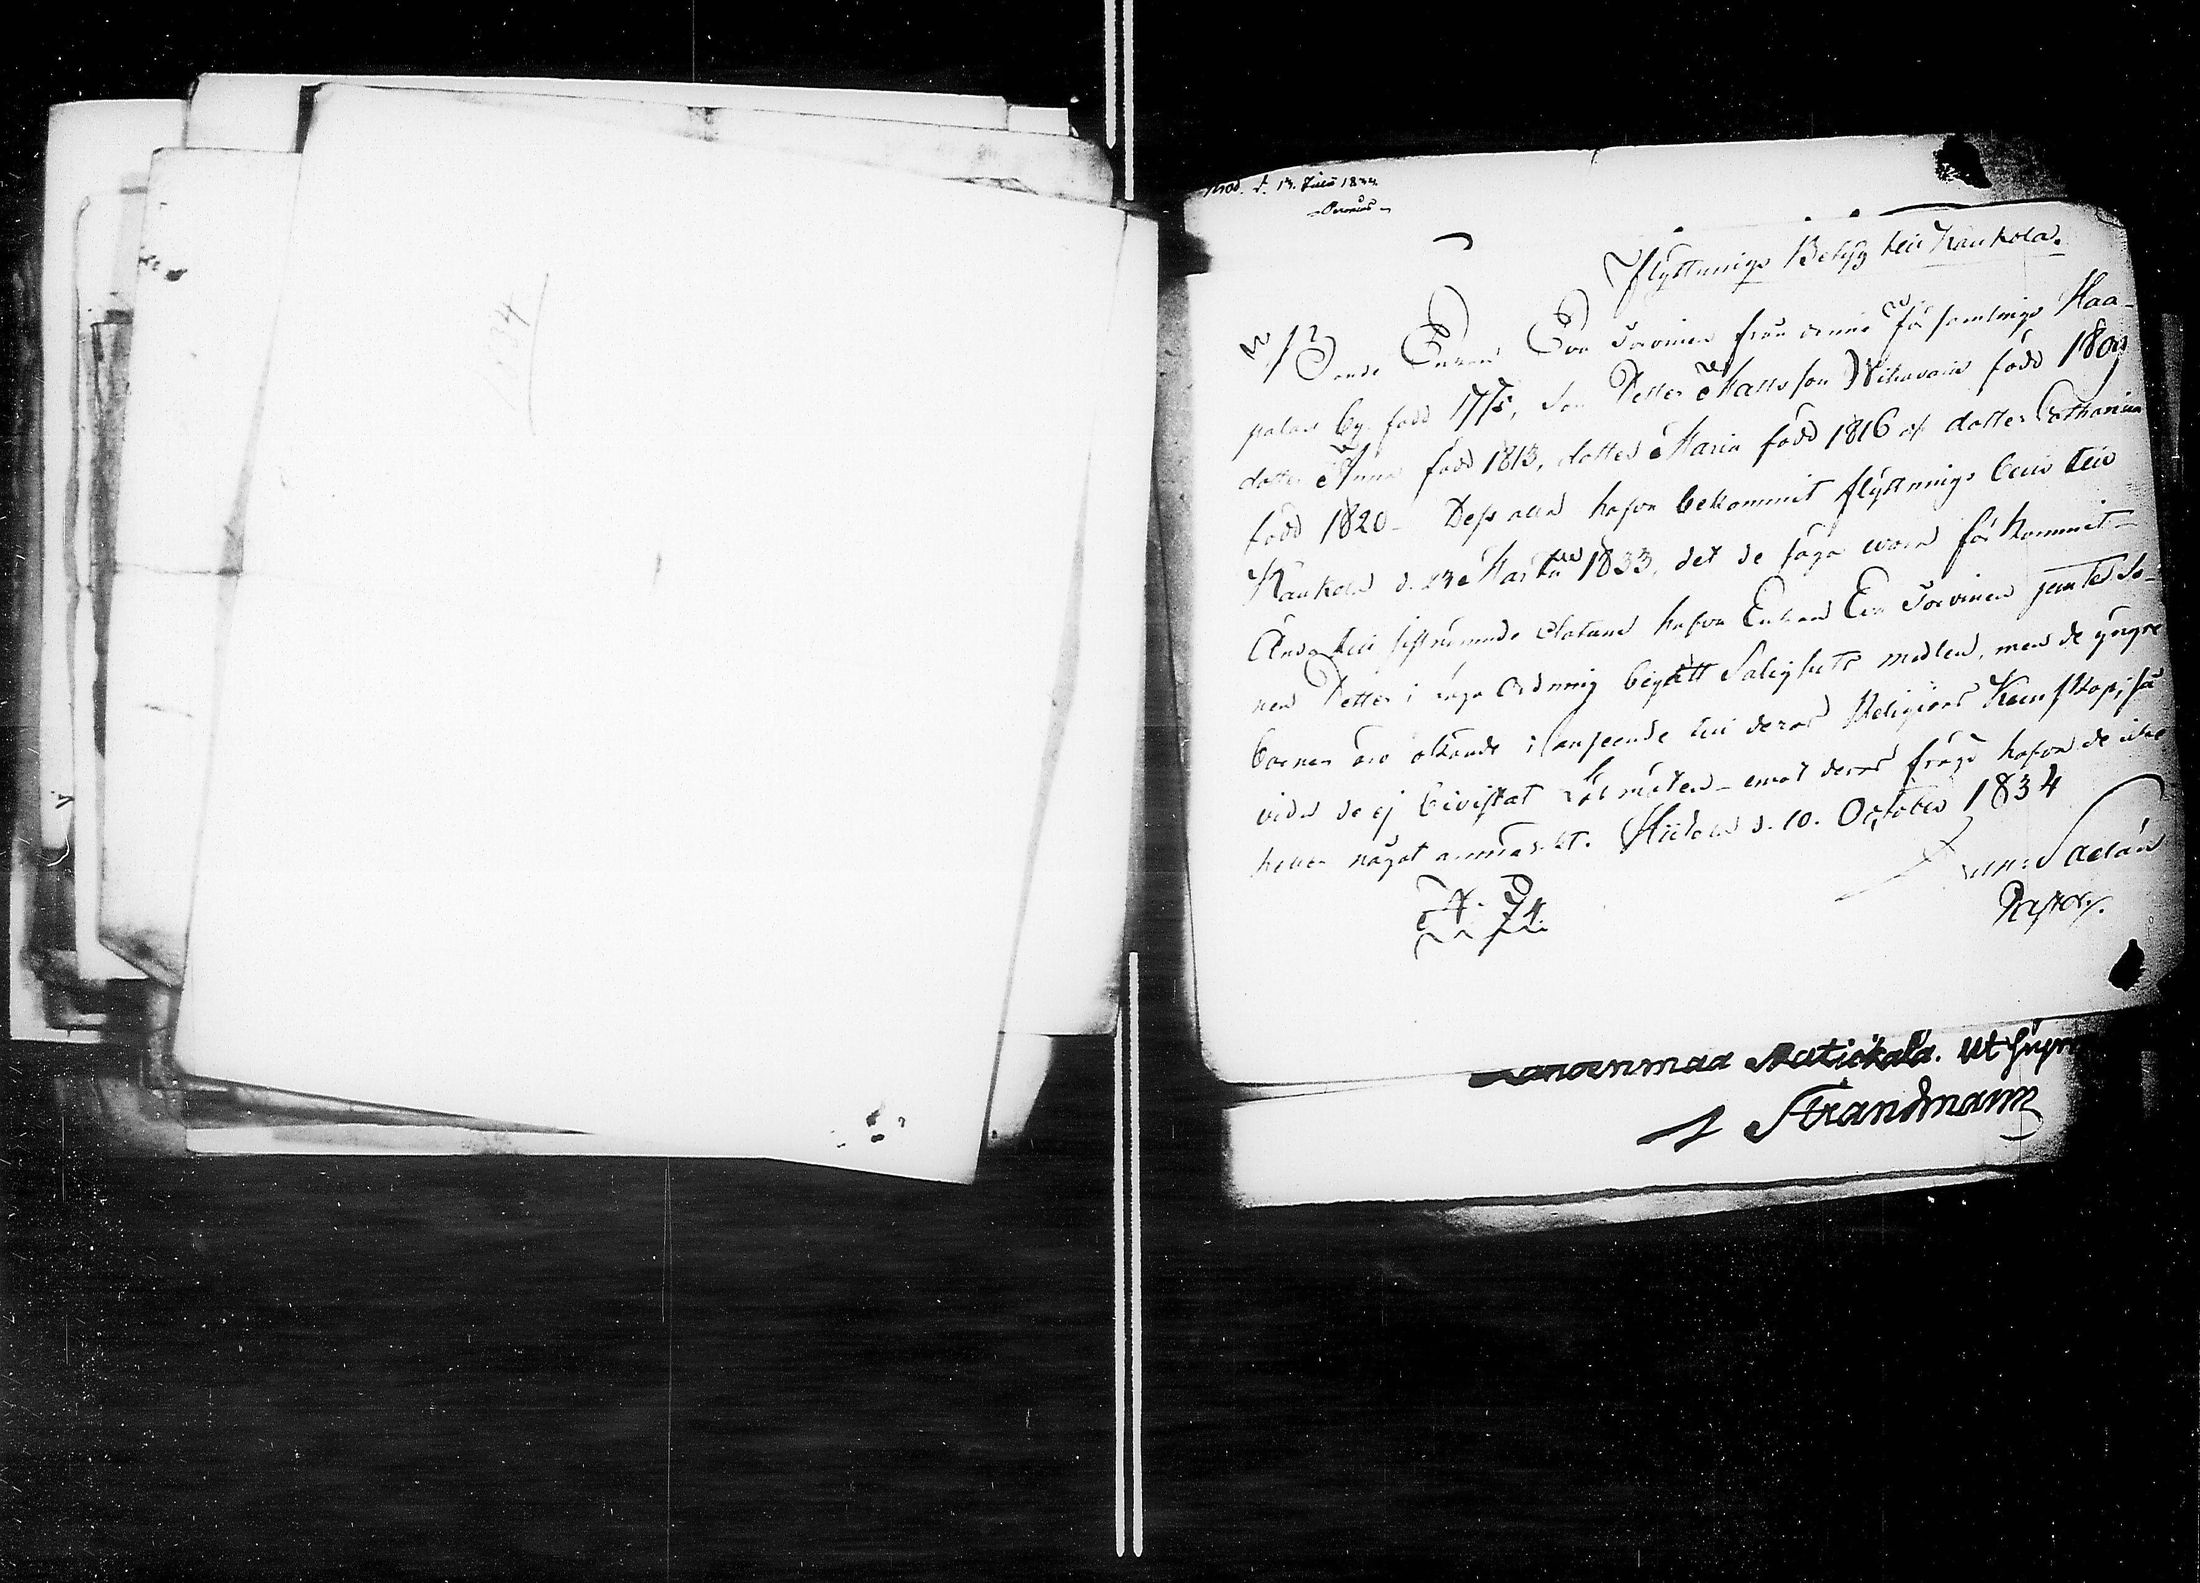 d. 13. Julii 1834
Flyttnings Betyg till Kaukola.
Enkan Eva Torvinen från denne församlings Haa-
palax by född 1775, son Petter Mattsson född 180
dotter Anna född 1813, dotter Maria född 1816 o dotter Catharina
född 1820 – Dess alla hafva bekommit flyttnings bevis till
Kaukola d. 23 Martii 1833, det de säga vara förkommit –
Ända till sistnämnde datum hafva Enkan Eva Torvinen jemte So-
nen Petter i laga Ordning begått Salighets medlen, men de yngre
barnen äro okände i anseende till deras Religions Kunskap, så
vida de ej bivistat Läsmöten – emot deras frägd hafva de icke
heller något anmärkt. Hiitola d. 10. October 1834
Pastor.
Matickala.
Strandmann